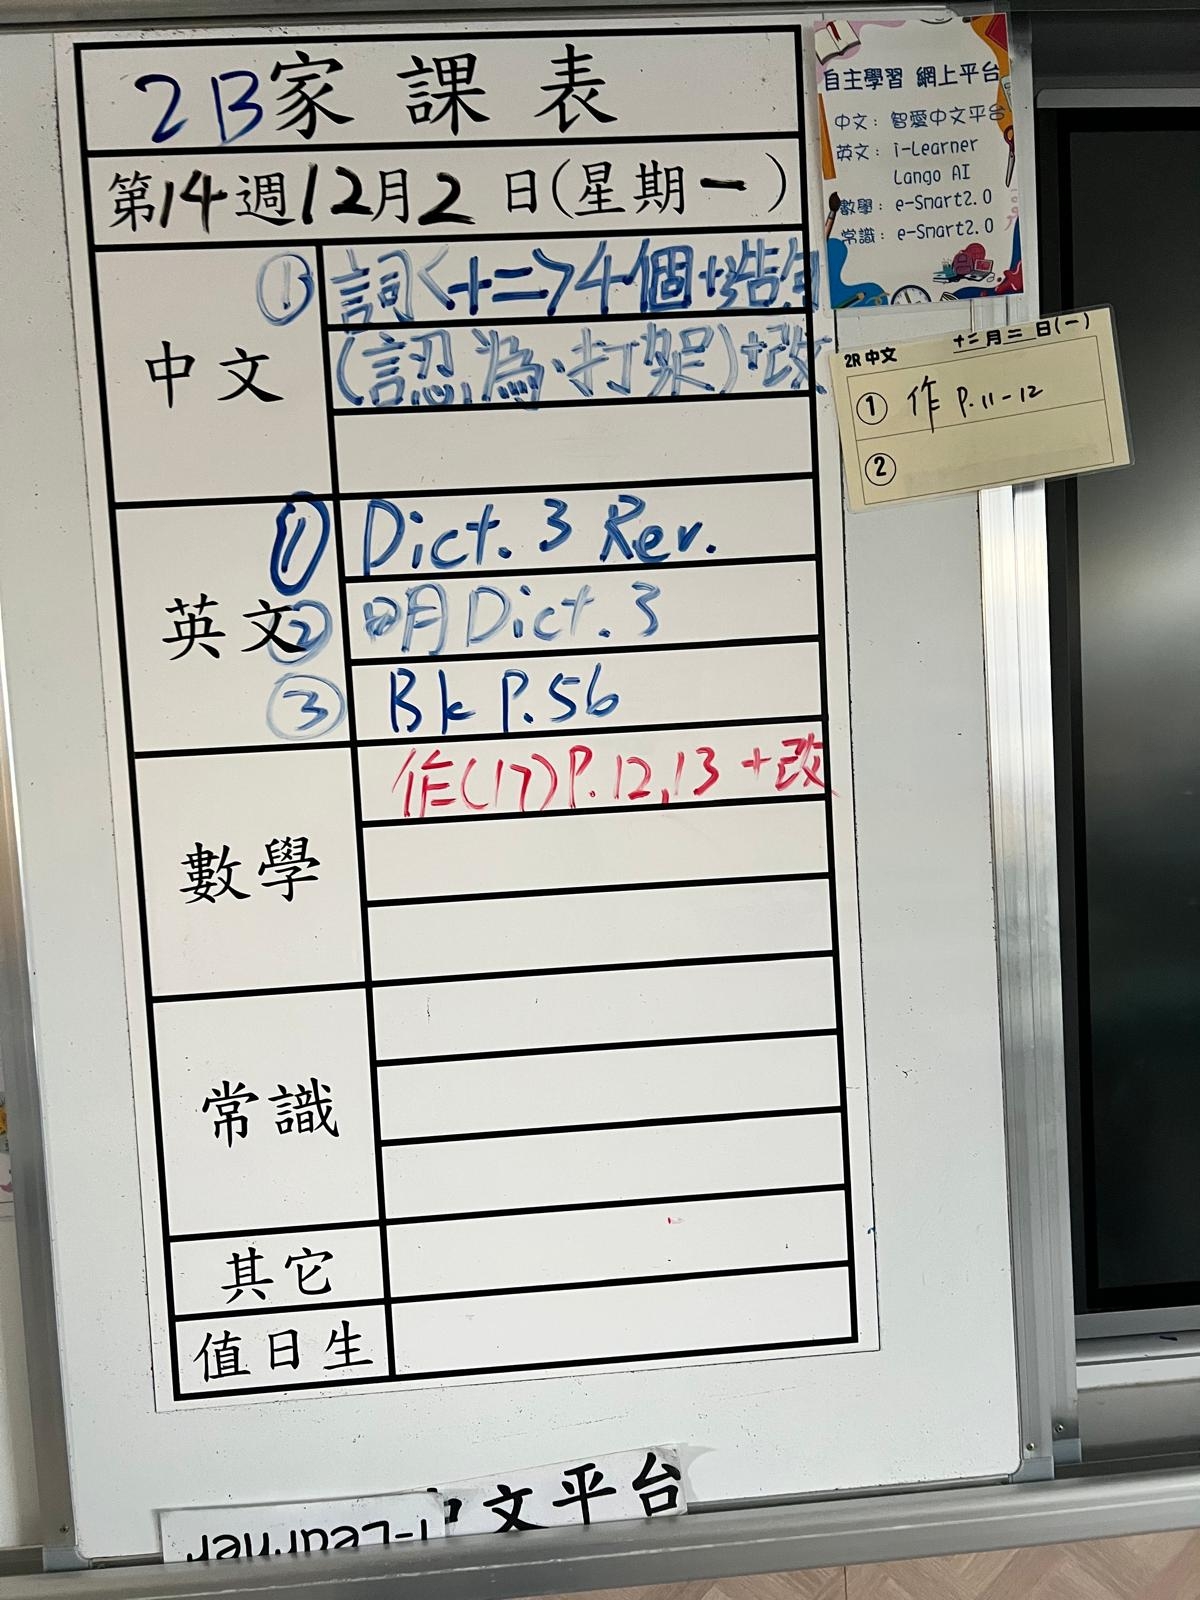 2B家課表
第14週12月2日(星期一)
中文
① 詞<十二>4個+造句
(認為、打架)+改
英文
① Dict. 3 Rev.
② 明 Dict. 3
③ Bk P.56
數學
作(17)P.12,13 +改
常識
其它
值日生
自主學習 網上平台
中文: 智愛中文平台
英文: i-Learner
Lango AI
數學: e-Smart2.0
常識: e-Smart2.0
2R 中文 十二月二日(一)
① 作 P.11-12
②
中文平台
i-Learner